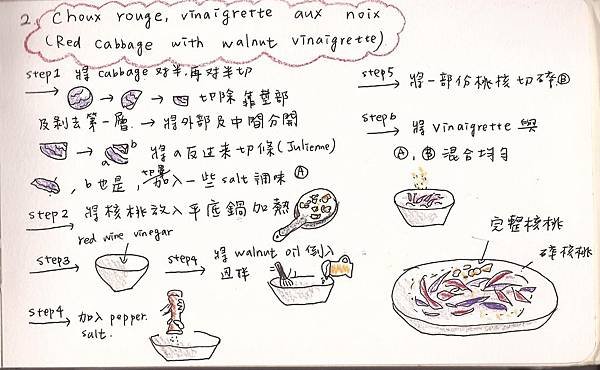 2. Choux rouge, vinaigrette aux noix
(Red Cabbage with walnut vinaigrette)
step1 將 cabbage 對半,再對半切
切除靠莖部
及剝去第一層. → 將外部及中間分開
a b 將a反过来切條(Julienne)
, b也是, 切畢 加入一些 salt 調味 Ⓐ
step2 將核桃放入平底鍋加熱
red wine vinegar
step3
step4 將 walnut oil 倒入
step4 加入 pepper.
salt.
step5 將一部份桃核切碎Ⓑ
step6 將 vinaigrette 與
Ⓐ, Ⓑ 混合均勻
完整核桃
碎核桃